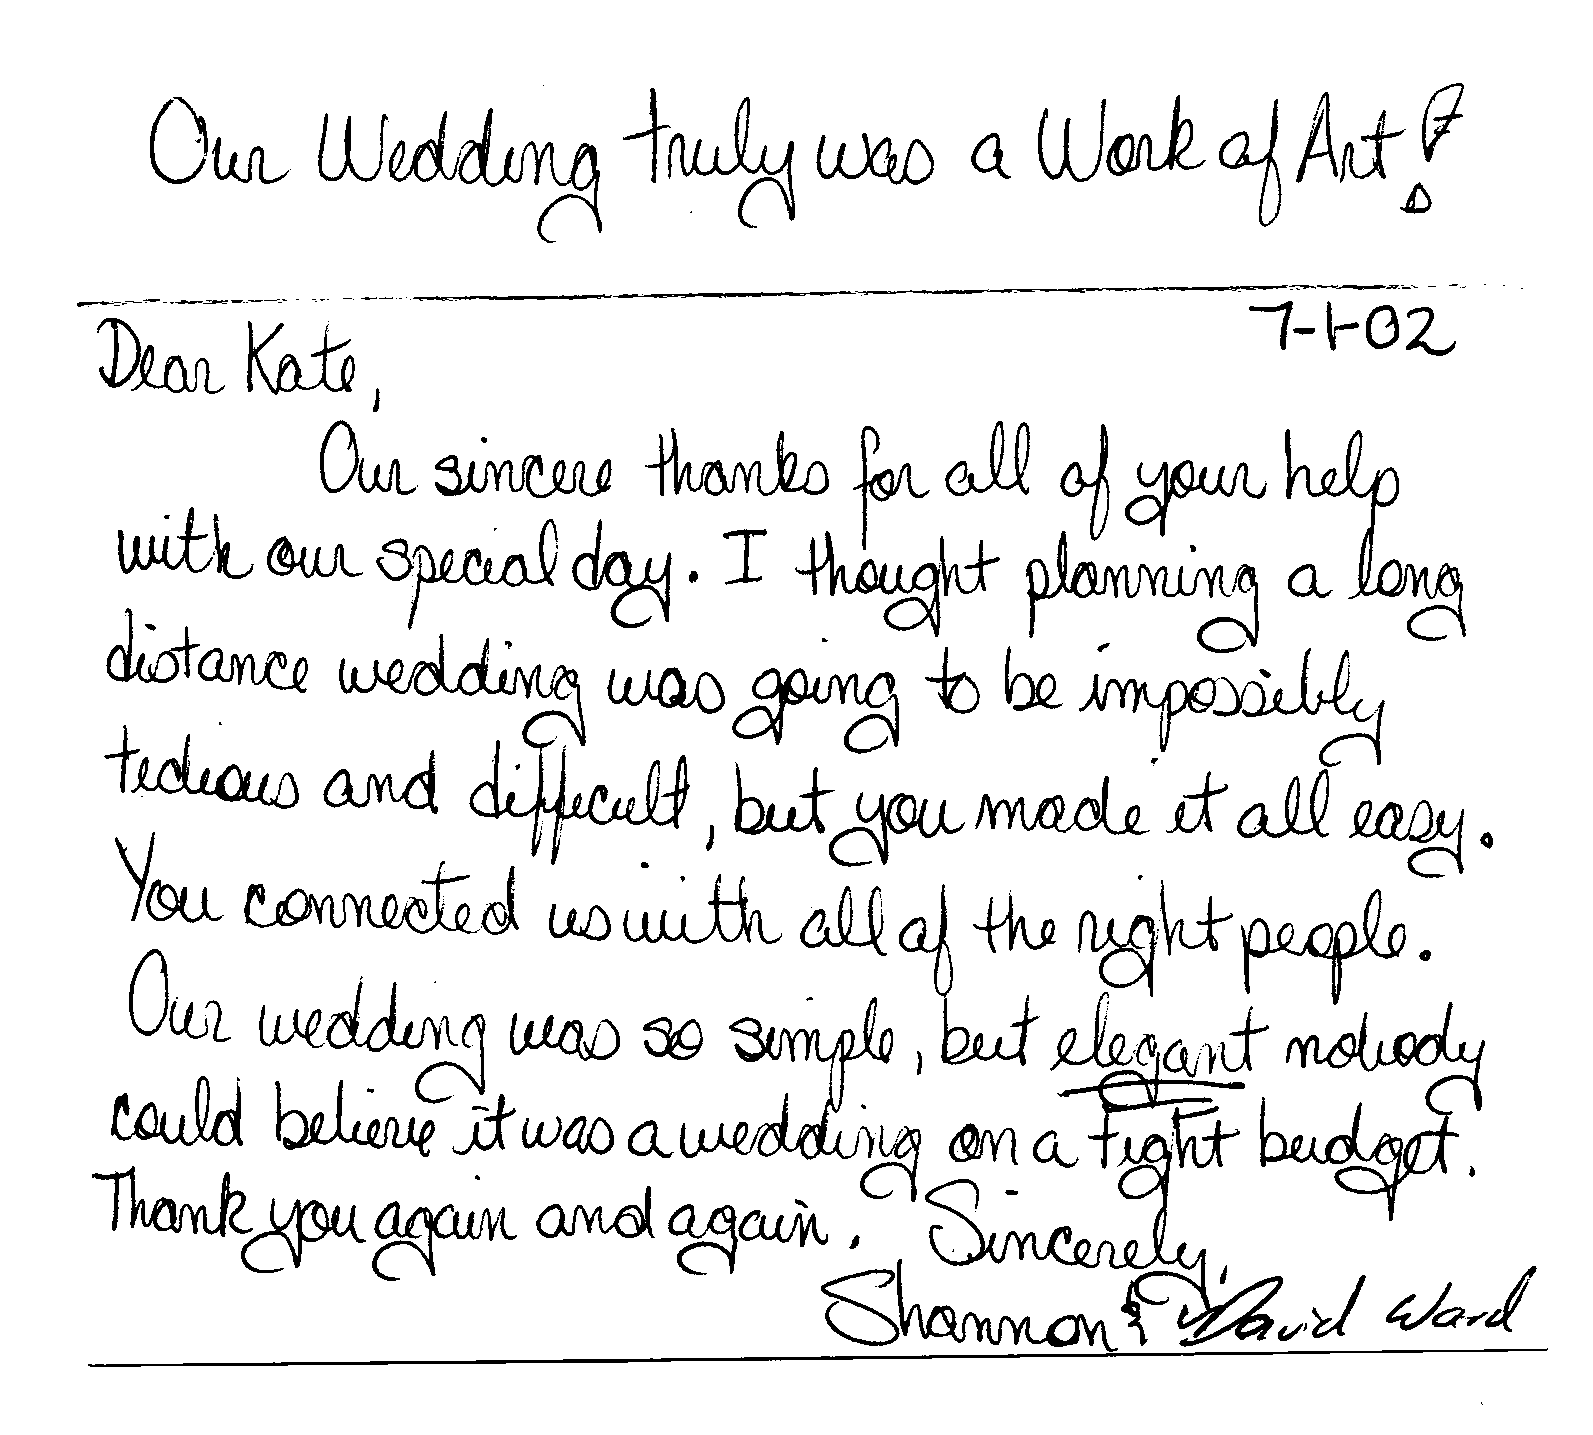 Our Wedding truly was a Work of Art!
7-1-02
Dear Kate,
Our sincere thanks for all of your help
with our special day. I thought planning a long
distance wedding was going to be impossibly
tedious and difficult, but you made it all easy.
You connected us with all of the right people.
Our wedding was so simple, but elegant nobody
could believe it was a wedding on a tight budget.
Thank you again and again. Sincerely,
Shannon & David Ward